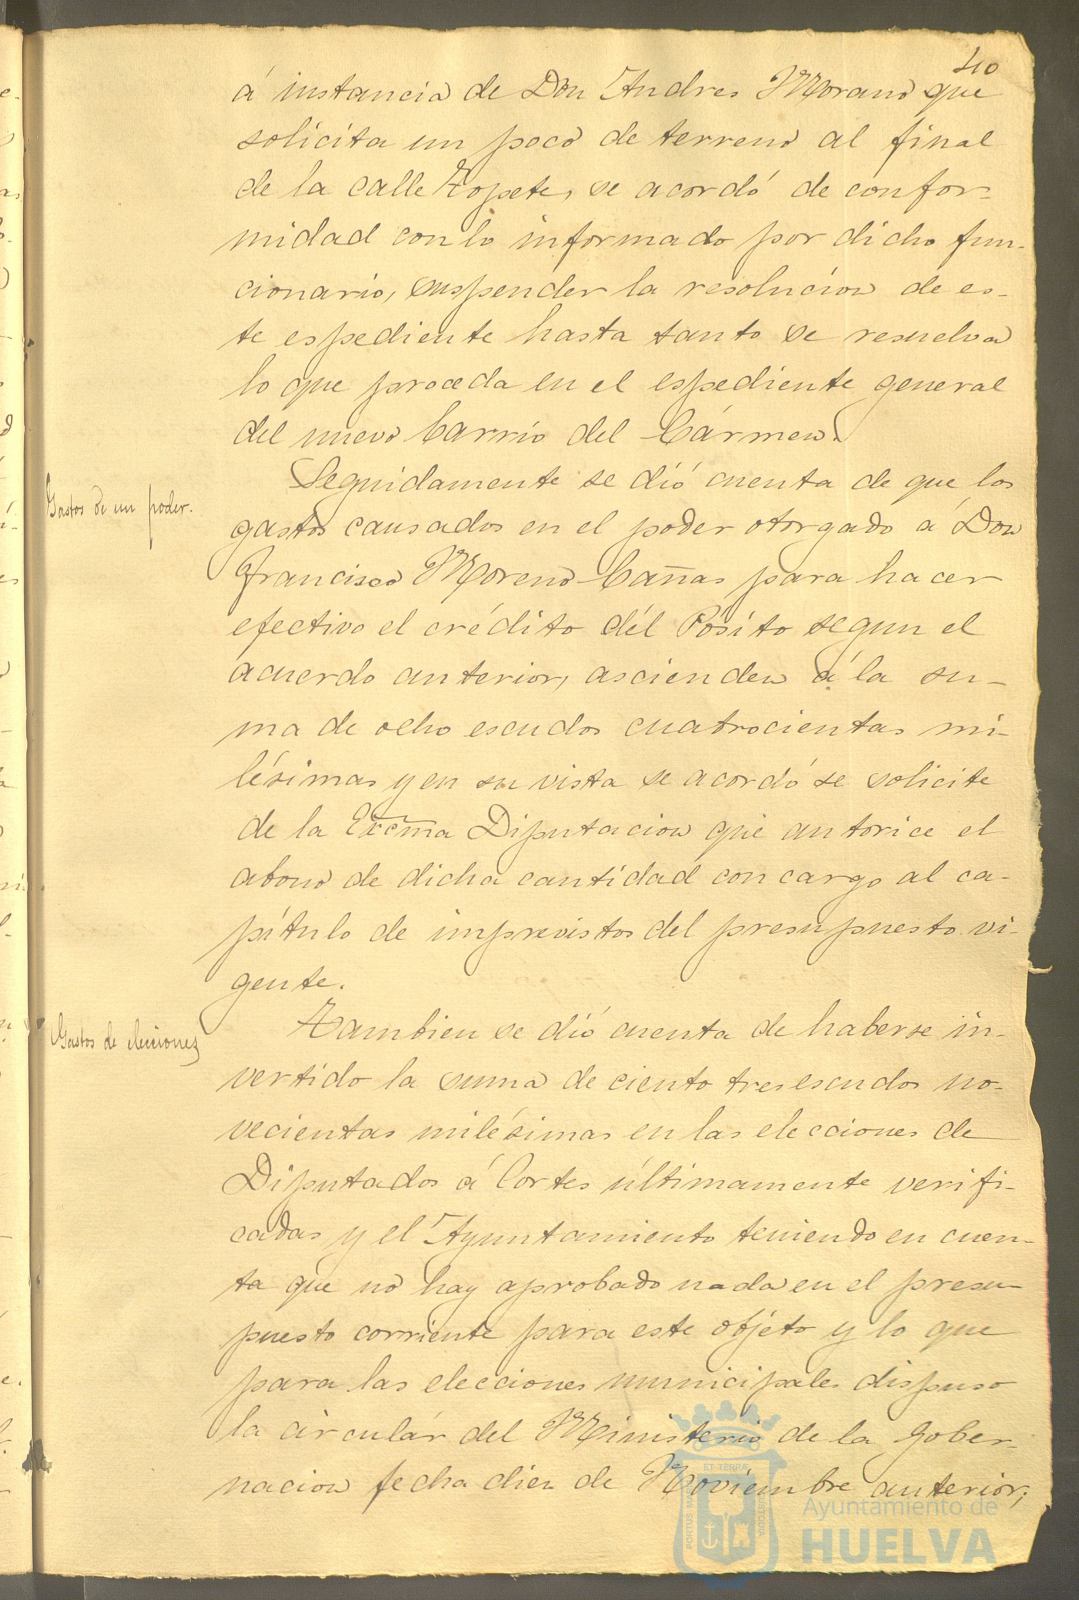 40
á instancia de Don Andres Morano que
solicita un poco de terreno al final
de la calle Topete, se acordó de confor-
midad con lo informado por dicho fun-
cionario, suspender la resolucion de es-
te espediente hasta tanto se resuelva
lo que proceda en el espediente general
del nuevo barrio del Cármen.
Gastos de un poder.
Seguidamente se dió cuenta de que los
gastos causados en el poder otorgado á Don
Francisco Moreno Cañas para hacer
efectivo el crédito del Pósito segun el
acuerdo anterior, ascienden á la su-
ma de ocho escudos cuatrocientas mi-
lésimas y en su vista se acordó se solicite
de la Excma Diputacion que autorice el
abono de dicha cantidad con cargo al ca-
pítulo de imprevistos del presupuesto vi-
gente.
Gastos de elecciones
Tambien se dió cuenta de haberse in-
vertido la suma de ciento tres escudos no-
vecientas milésimas en las elecciones de
Diputados á Cortes últimamente verifi-
cadas y el Ayuntamiento teniendo en cuen-
ta que no hay aprobado nada en el presu-
puesto corriente para este objeto y lo que
para las elecciones municipales dispuso
la circulár del Ministerio de la Gober-
nacion fecha diez de Noviembre anterior;
Ayuntamiento de
HUELVA